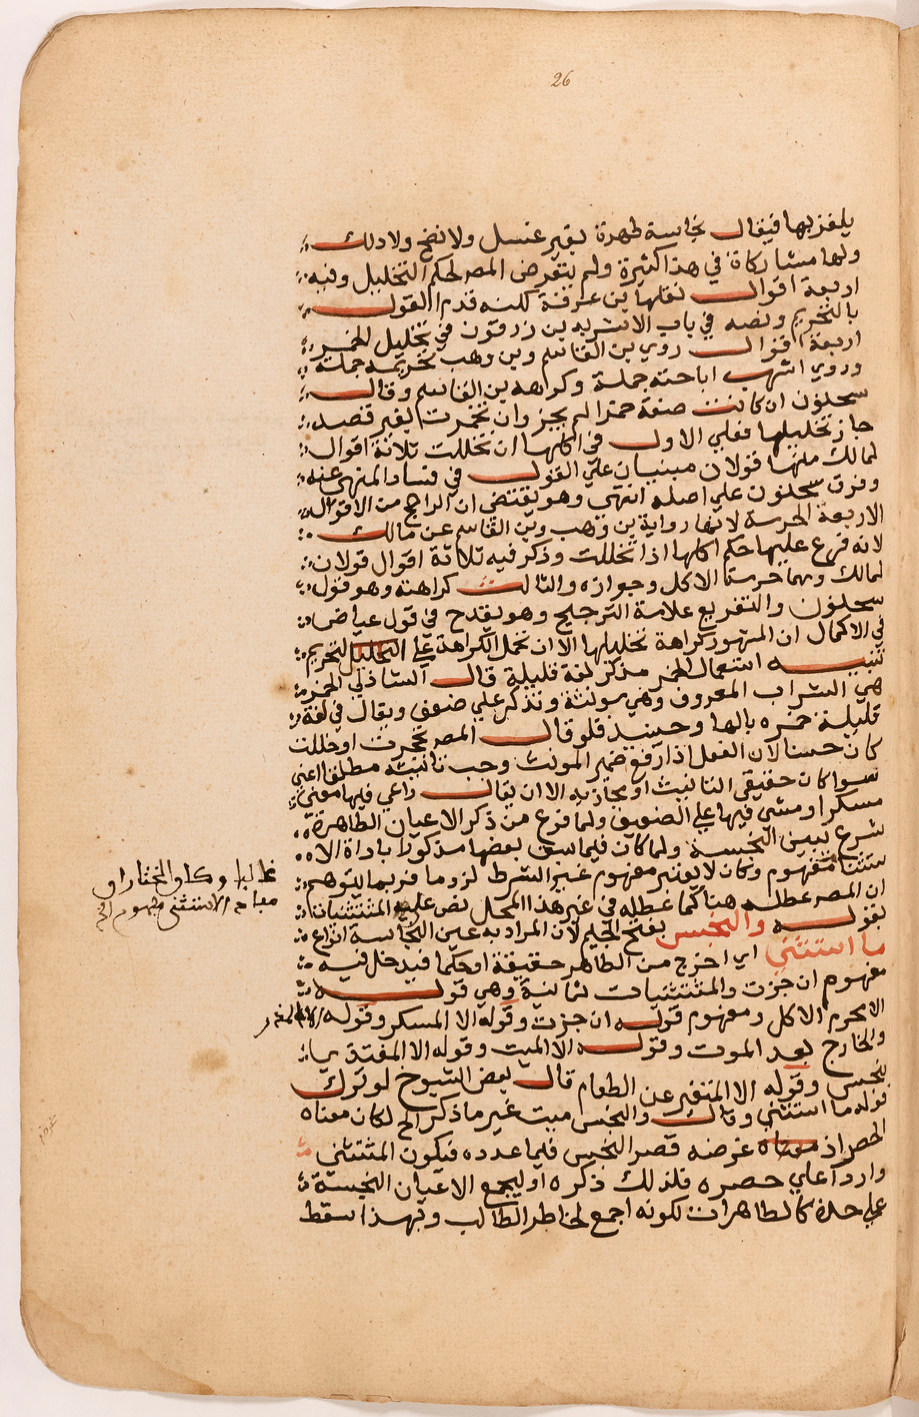 26
يلغز بها فيقال نجاسة طهرت بغير غسل ولا نضح ولا دلك
ولها مشاركات في هذا كثيرة ولم يتعرض المص لحكم التخليل وفيه
اربعة اقوال نقلها بن عرفة لكنه قدم القول
بالتحريم ونصه في باب الاشربه بن زرقون في تخليل الخمر
اربعة اقوال روي بن القاسم وبن وهب تحريمه جملة
وروي اشهب اباحته جملة وكراهه بن القاسم وقال
سحنون ان كانت صنعة خمرا لم يجز وان تخمرت لغير قصد
جاز تخليلها فعلي الاول في اكلها ان تخللت ثلاثة اقوال
لمالك منها قولان مبنيان علي القول في فساد المنهي عنه
وفرق سحنون علي اصله انتهي وهو يقتضي ان الراجح من الاقوال
الاربعة الحرمة لانها رواية بن وهب وبن القاسم عن مالك
لانه فرع عليها حكم اكلها اذا تخللت وذكر فيه ثلاثة اقوال قولان
لمالك وهما حرمة الاكل وجوازه والثالث كراهته وهو قول
سحنون والتفريع علامة الترجيح وهو يقدح في قول عياض
في الاكمال ان المشهور كراهة تخليلها الا ان تحمل الكراهة علي التحليل التحريم
تنبيه استعمال الخمر مذكر لغة قليلة قال الشاذلي الخمر
هي الشراب المعروف وهي مونثة وتذكر علي ضعف ويقال في لغة
قليلة خمره بالها وحينيذ فلو قال المص تخمرت او خللت
كان حسنا لان الفعل اذا رفع ضمير المونث وجب تانيثه مطلقا اعني
سوا كان حقيقي التانيث او مجازيه الا ان يقال راعي فيها معني
مسكر او مشي فيها علي الضعيف ولما فرغ من ذكر الاعيان الطاهرة
شرع يبين النجسة ولما كان فيما سبق بعضها مذكورا باداة الا
ستثنا مفهوم وكان لا يعتبر مفهوم غير الشرط لزوما فربما يتوهم
غالبا وكان المختار ان
مفاد الاستثني مفهوم الخ
ان المص عطله هنا كما عطله في غير هذا المحل نص علي المستثنيات
بقوله والنجس بفتح الجيم لان المراد به عين النجاسة انواع
ما استثني اي اخرج من الطاهر حقيقة او حكما فيدخل فيه
مفهوم ان جزت والمستثنيات ثمانية وهي قوله
الا محرم الاكل ومفهوم قوله ان جزت وقوله الا المسكر وقوله الا المذر
والخارج بعد الموت وقوله الا الميت وقوله الا المغتذي
بنجس وقوله الا المتغير عن الطعام قال بعض الشيوخ لو ترك
قوله ما استثني وقال والنجس ميت غير ما ذكر الخ لكان معناه
الحصر اذ معناه غرضه قصر النجس فيما عدده فيكون المستثني
واردا علي حصره فلذلك ذكره او ليجمع الاعيان النجسة
علي حدة كالطاهرات لكونه اجمع لخاطر الطالب وبهذا سقط